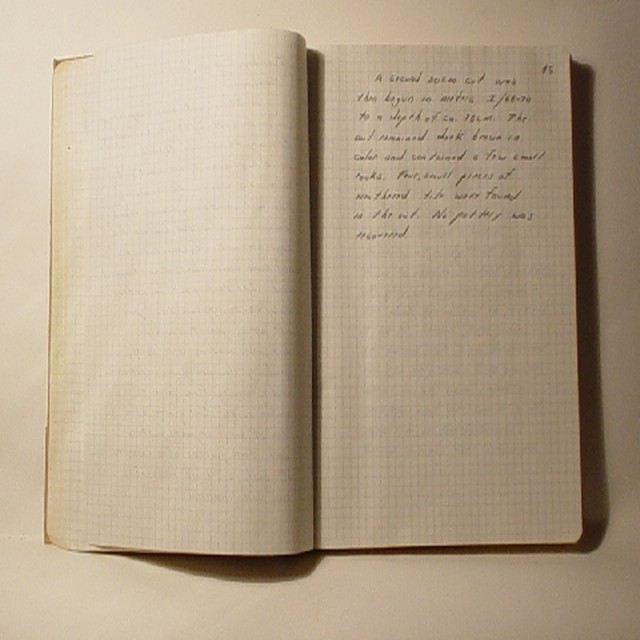 15
A second 20cm cut was
then begun in metris I/68:70
to a depth of ca. 18cm. The
soil remained dark brown in
color and contained a few small
rocks. Four small pieces of
weathered tile were found
in the cut. No pottery was
recovered.